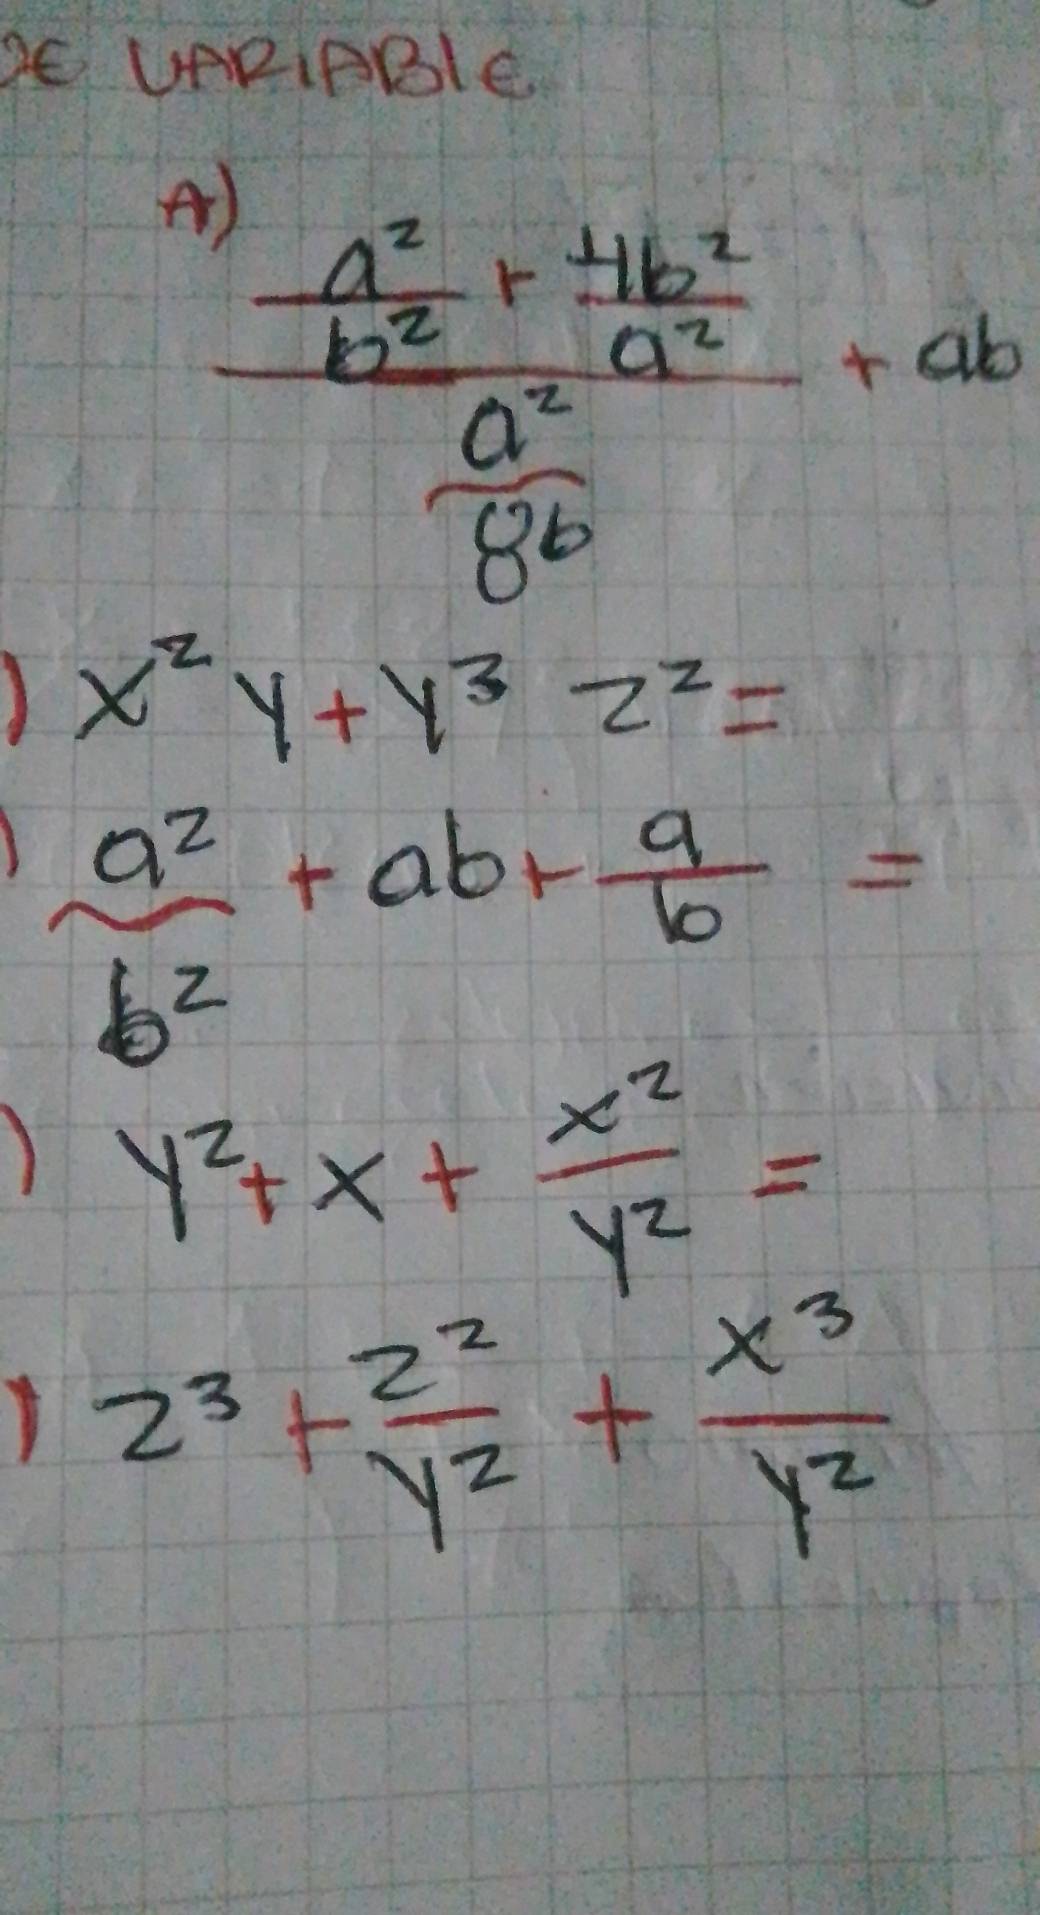 DE VARIABLE
A)
a² / b² + 4b² / a²
───────── + ab
a² / 8b
) x² y + y³ z² =
) a² / b² + ab + a / b =
) y² + x + x² / y² =
) z³ + z² / y² + x³ / y²